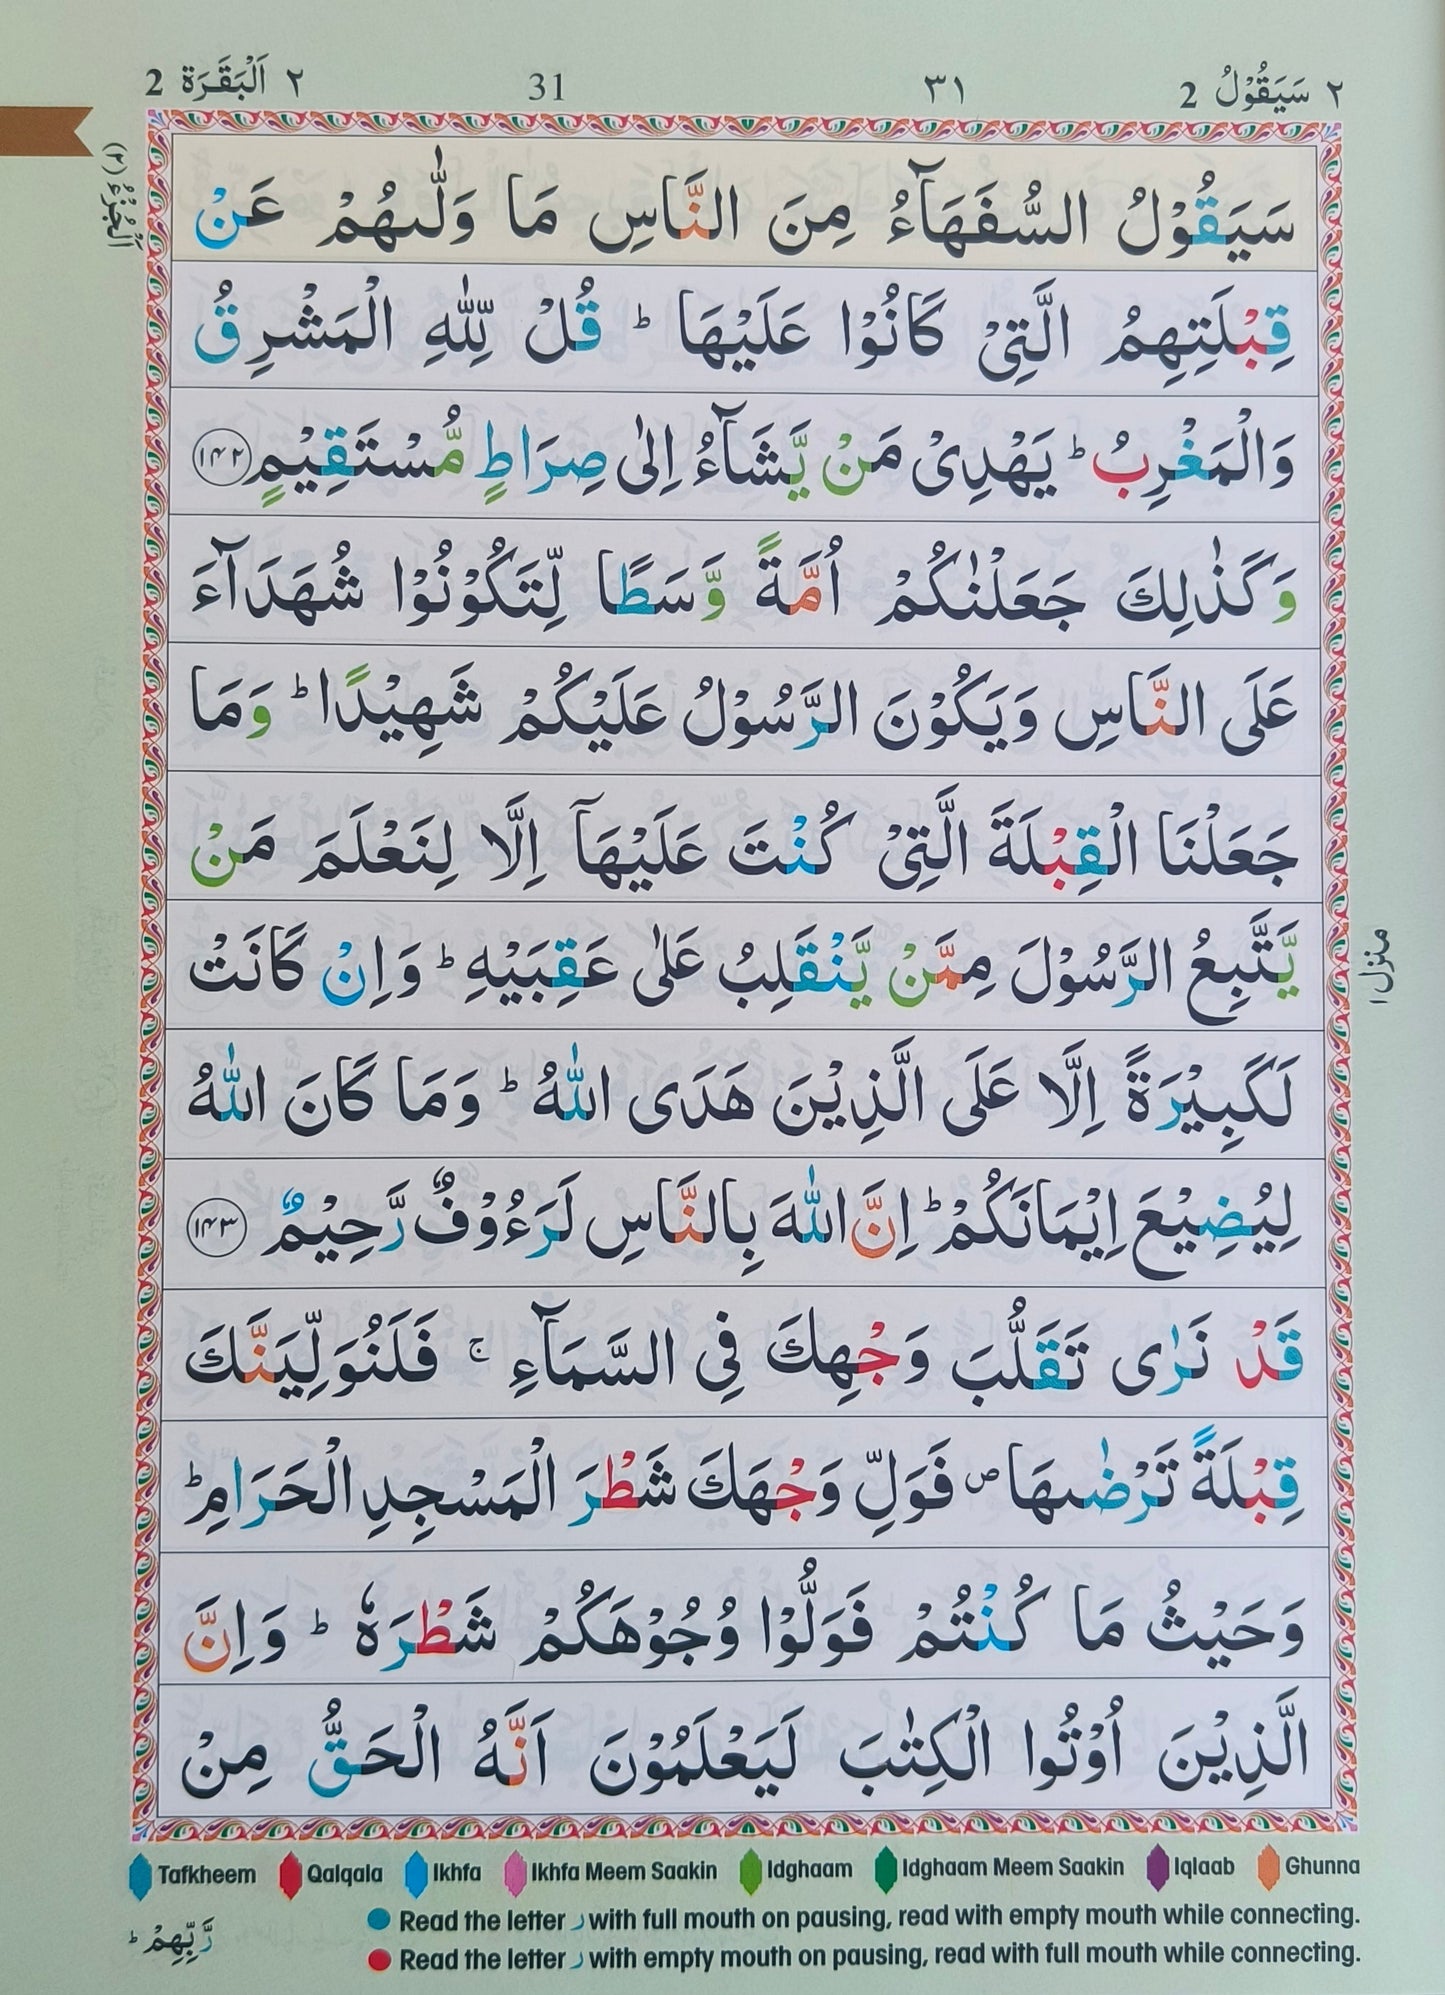 ٢ سَيَقُوْلُ 2
٣١
31
٢ اَلْبَقَرَة 2
اَلْجُزْءُ (٢)
سَيَقُوْلُ السُّفَهَآءُ مِنَ النَّاسِ مَا وَلّٰىهُمْ عَنْ
قِبْلَتِهِمُ الَّتِىْ كَانُوْا عَلَيْهَا ؕ قُلْ لِّلّٰهِ الْمَشْرِقُ
وَالْمَغْرِبُ ؕ يَهْدِىْ مَنْ يَّشَآءُ اِلٰى صِرَاطٍ مُّسْتَقِيْمٍ ۝۱۴۲
وَكَذٰلِكَ جَعَلْنٰكُمْ اُمَّةً وَّسَطًا لِّتَكُوْنُوْا شُهَدَآءَ
عَلَى النَّاسِ وَيَكُوْنَ الرَّسُوْلُ عَلَيْكُمْ شَهِيْدًا ؕ وَمَا
جَعَلْنَا الْقِبْلَةَ الَّتِىْ كُنْتَ عَلَيْهَآ اِلَّا لِنَعْلَمَ مَنْ
يَّتَّبِعُ الرَّسُوْلَ مِمَّنْ يَّنْقَلِبُ عَلٰى عَقِبَيْهِ ؕ وَاِنْ كَانَتْ
لَكَبِيْرَةً اِلَّا عَلَى الَّذِيْنَ هَدَى اللّٰهُ ؕ وَمَا كَانَ اللّٰهُ
لِيُضِيْعَ اِيْمَانَكُمْ ؕ اِنَّ اللّٰهَ بِالنَّاسِ لَرَءُوْفٌ رَّحِيْمٌ ۝۱۴۳
قَدْ نَرٰى تَقَلُّبَ وَجْهِكَ فِى السَّمَآءِ ۚ فَلَنُوَلِّيَنَّكَ
قِبْلَةً تَرْضٰىهَا ۖ فَوَلِّ وَجْهَكَ شَطْرَ الْمَسْجِدِ الْحَرَامِ ؕ
وَحَيْثُ مَا كُنْتُمْ فَوَلُّوْا وُجُوْهَكُمْ شَطْرَهٗ ؕ وَاِنَّ
الَّذِيْنَ اُوْتُوا الْكِتٰبَ لَيَعْلَمُوْنَ اَنَّهُ الْحَقُّ مِنْ
منزل ۱
Tafkheem Qalqala Ikhfa Ikhfa Meem Saakin Idghaam Idghaam Meem Saakin Iqlaab Ghunna
Read the letter ر with full mouth on pausing, read with empty mouth while connecting.
Read the letter ر with empty mouth on pausing, read with full mouth while connecting.
رَّبِّهِمْ ؕ